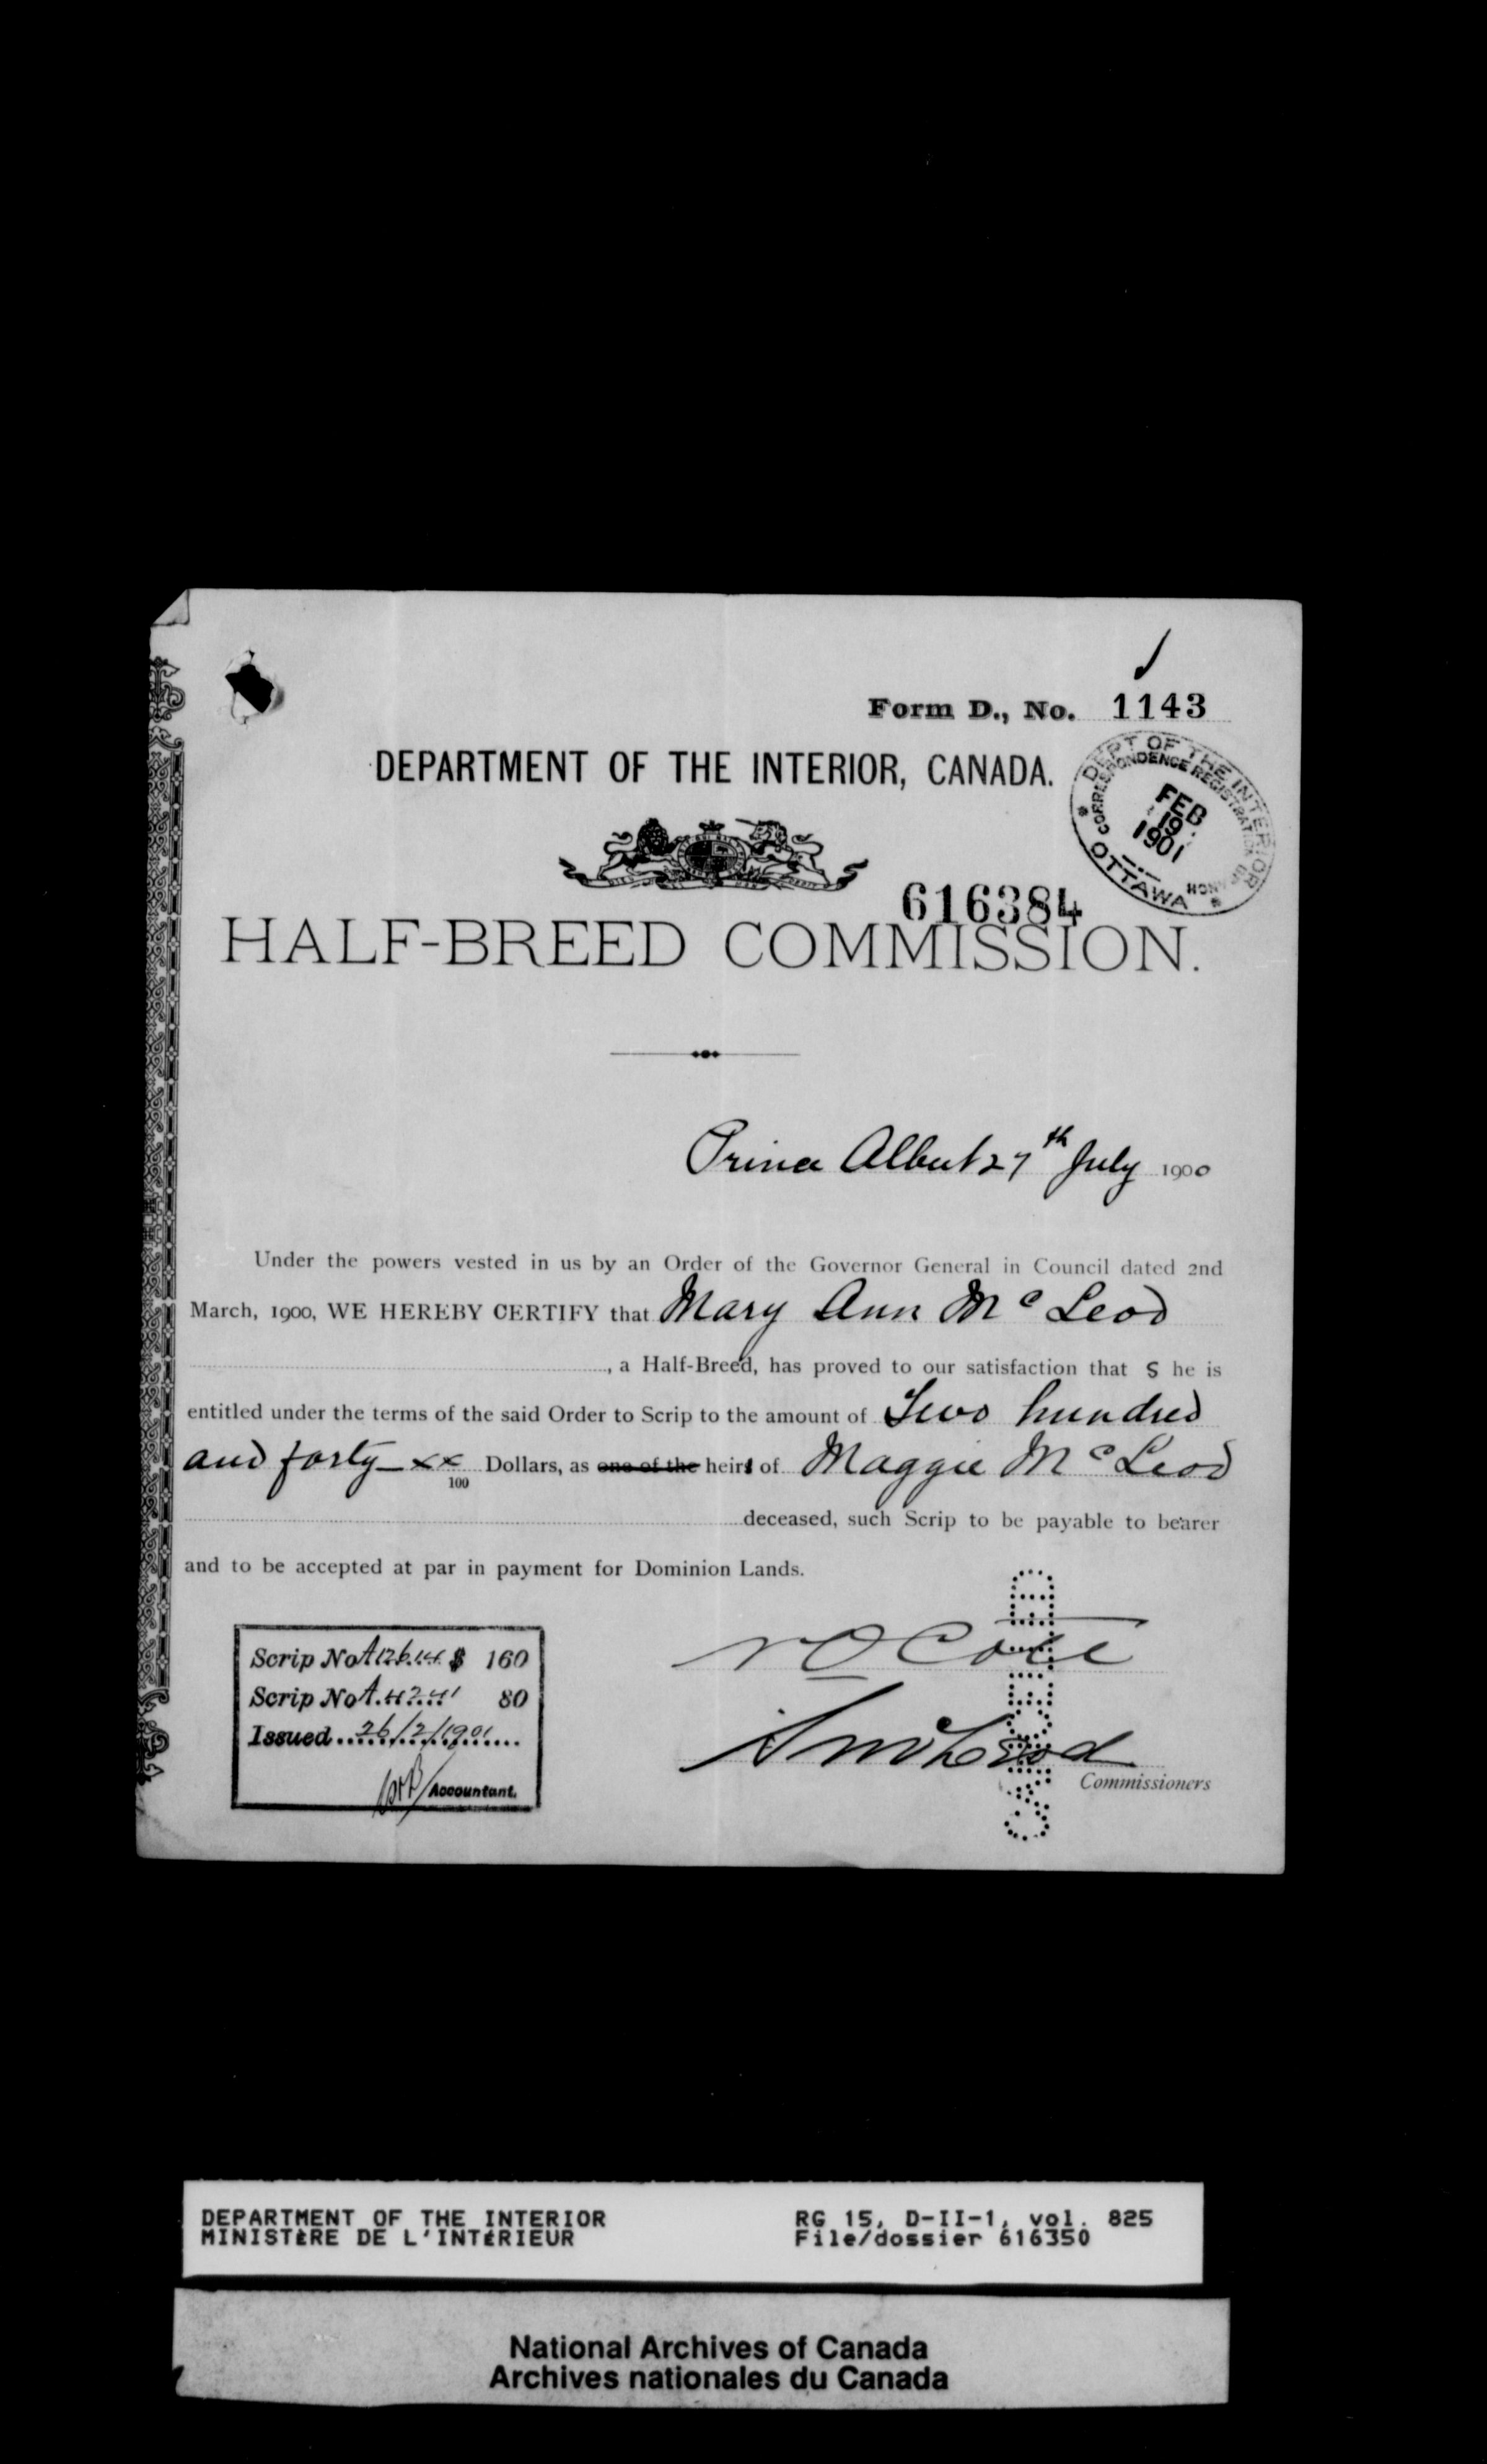 Form D., No. 1143
DEPARTMENT OF THE INTERIOR, CANADA.
DEPT OF THE INTERIOR
CORRESPONDENCE REGISTRATION BRANCH
FEB
19
1901
OTTAWA
616384
HALF-BREED COMMISSION.
Prince Albert 27th July 1900
Under the powers vested in us by an Order of the Governor General in Council dated 2nd
March, 1900, WE HEREBY CERTIFY that Mary Ann McLeod
, a Half-Breed, has proved to our satisfaction that S he is
entitled under the terms of the said Order to Scrip to the amount of Two hundred
and forty xx/100 Dollars, as one of the heirs of Maggie McLeod
deceased, such Scrip to be payable to bearer
and to be accepted at par in payment for Dominion Lands.
Scrip No A12614 $ 160
Scrip No A.4241 80
Issued 26/2/1901
Accountant.
N O Cote
Commissioners
DEPARTMENT OF THE INTERIOR
MINISTÈRE DE L'INTÉRIEUR
RG 15, D-II-1, vol. 825
File/dossier 616350
National Archives of Canada
Archives nationales du Canada